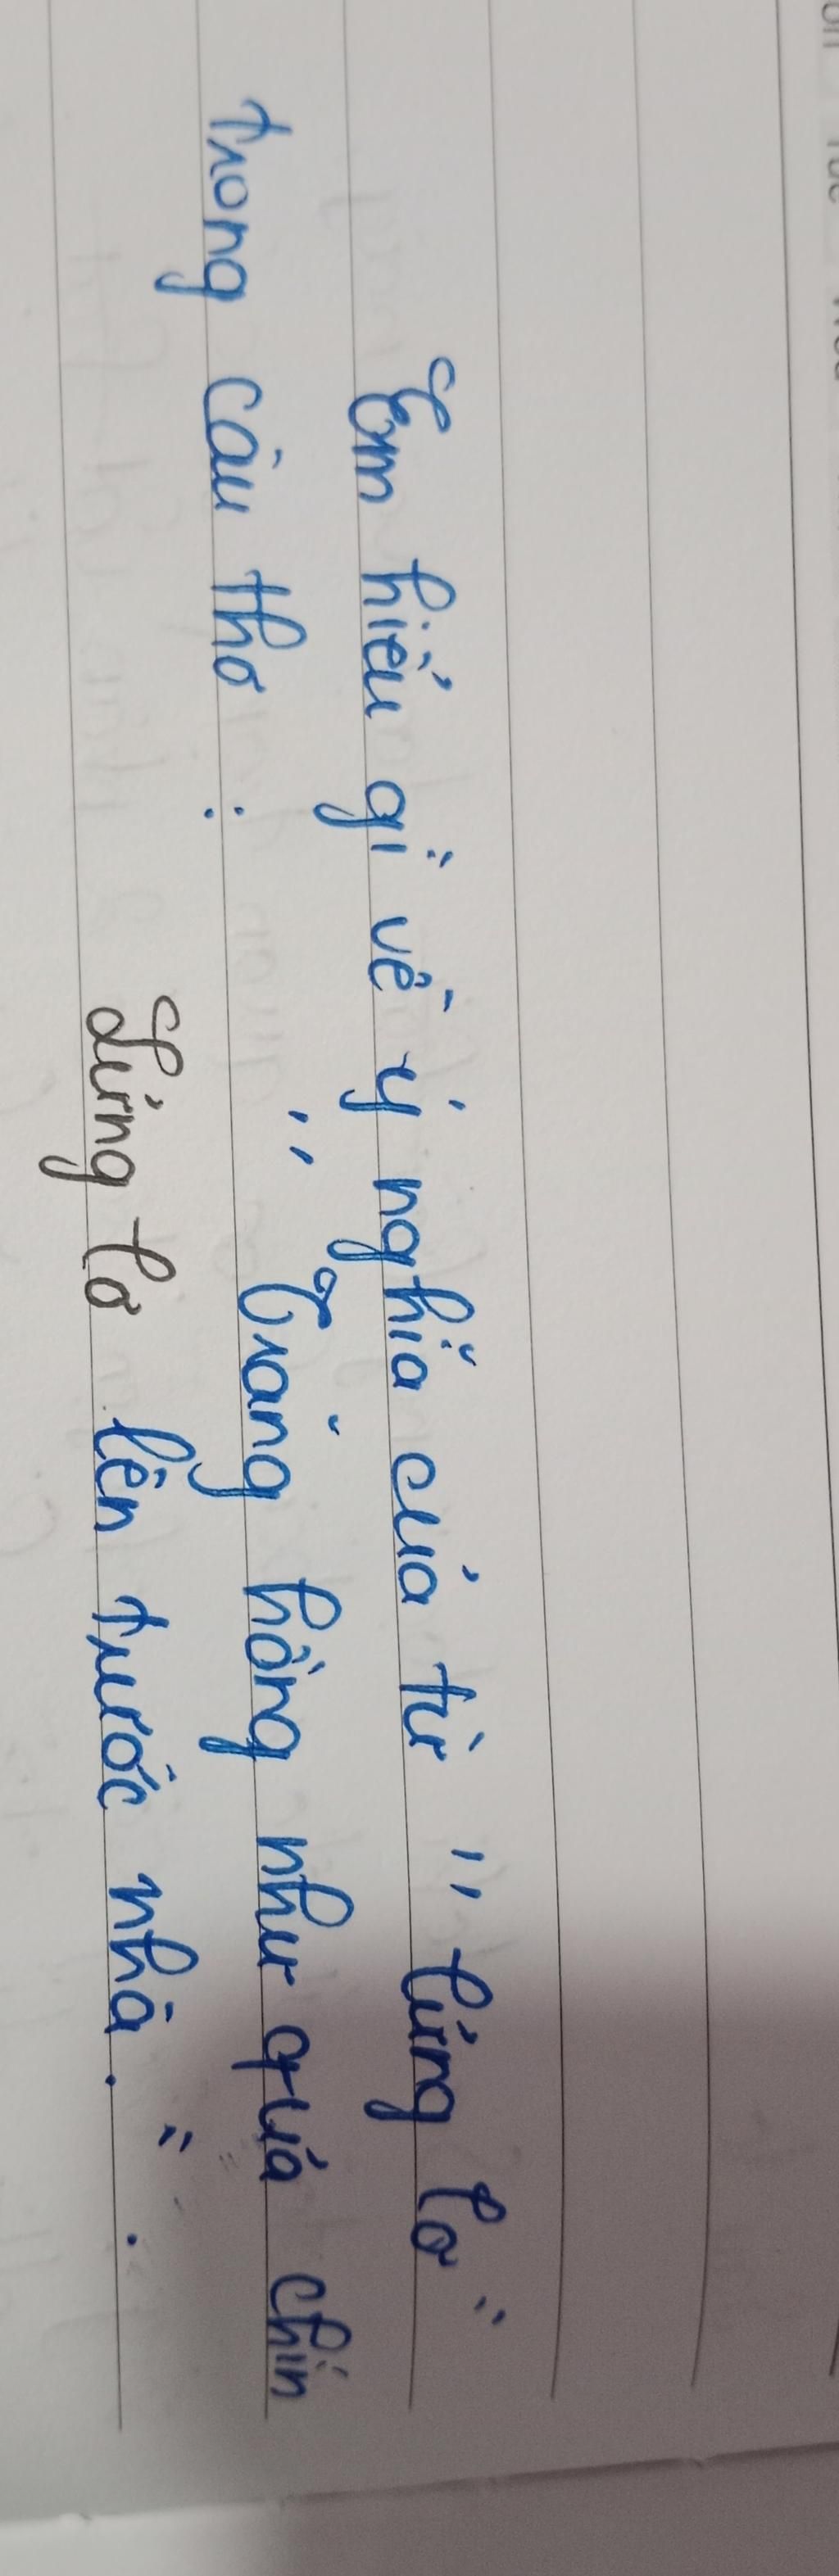 Em hiểu gì về ý nghĩa của từ "lửng lơ"
trong câu thơ : " Trăng hồng như quả chín
Lửng lơ lên trước nhà. " .